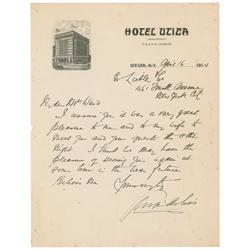 HOTEL UTICA
UTICA, N.Y. April 16 1914
461 Fourth Avenue
New York City
My dear Mr Ward
I assure you it was a very great
pleasure to me and to my wife to
meet you and your guests the other
night. I trust we may have the
pleasure of seeing you again at
some time in the near future
Believe me